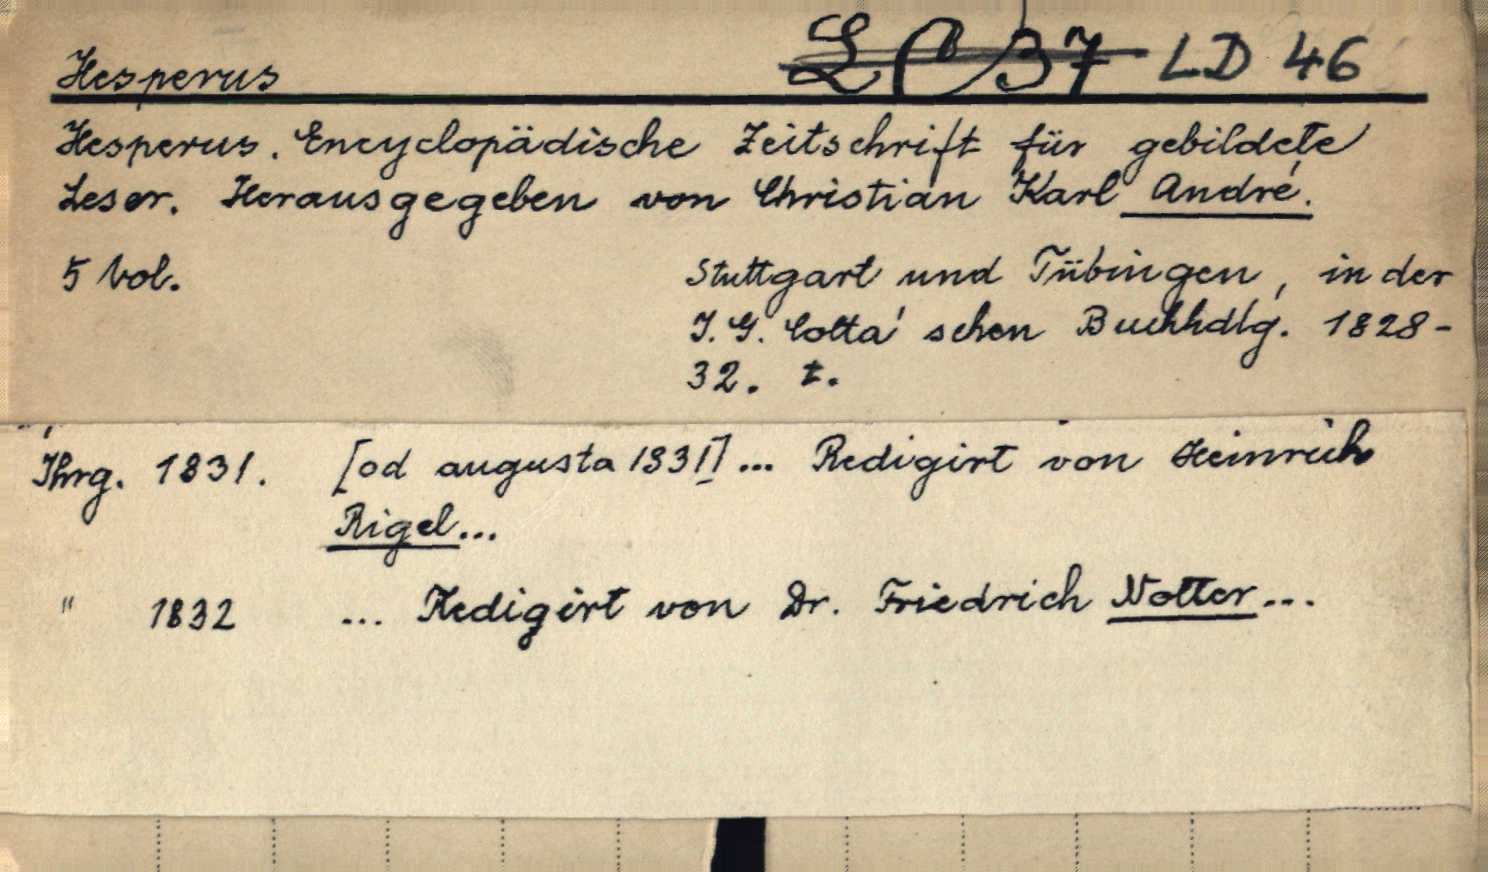 Hesperus LC 37 LD 46
Hesperus. Encyclopädische Zeitschrift für gebildete
Leser. Herausgegeben von Christian Karl André.
5 Vol. Stuttgart und Tübingen, in der
J. G. Cotta'schen Buchhdlg. 1828-
32. t.
Jhrg. 1831. [od augusta 1831] ... Redigirt von Heinrich
Rigel...
" 1832 ... Redigirt von Dr. Friedrich Notter...